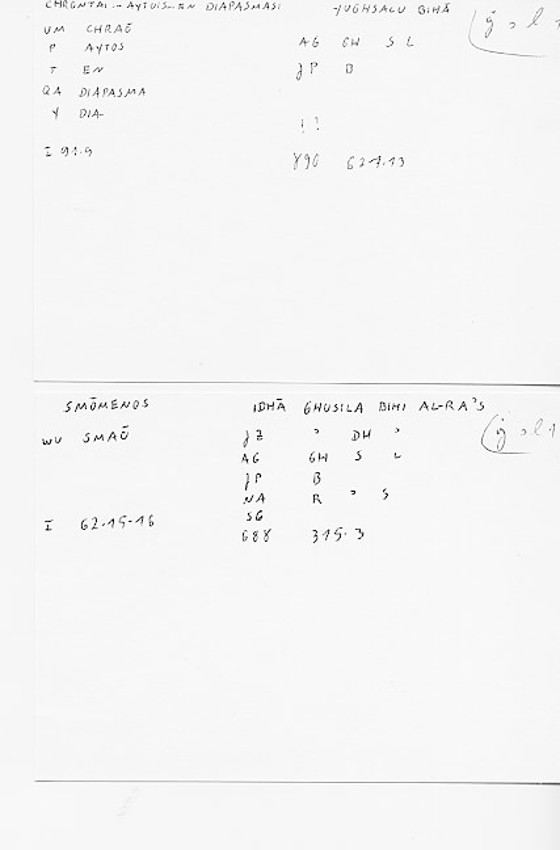 CHRŌNTAI -- AYTOIS -- EN DIAPASMASI YUGHSALU BIHĀ
UM CHRAŌ
P AYTOS AG GH S L
T EN JP B
QA DIAPASMA
Y DIA-
! ?
I 91.9 890 627.13
SMŌMENOS IDHĀ GHUSILA BIHI AL-RA'S
WU SMAŌ JZ ' DH '
AG GH S L
JP B
NA R ' S
SG
I 62.15-16 688 315.3